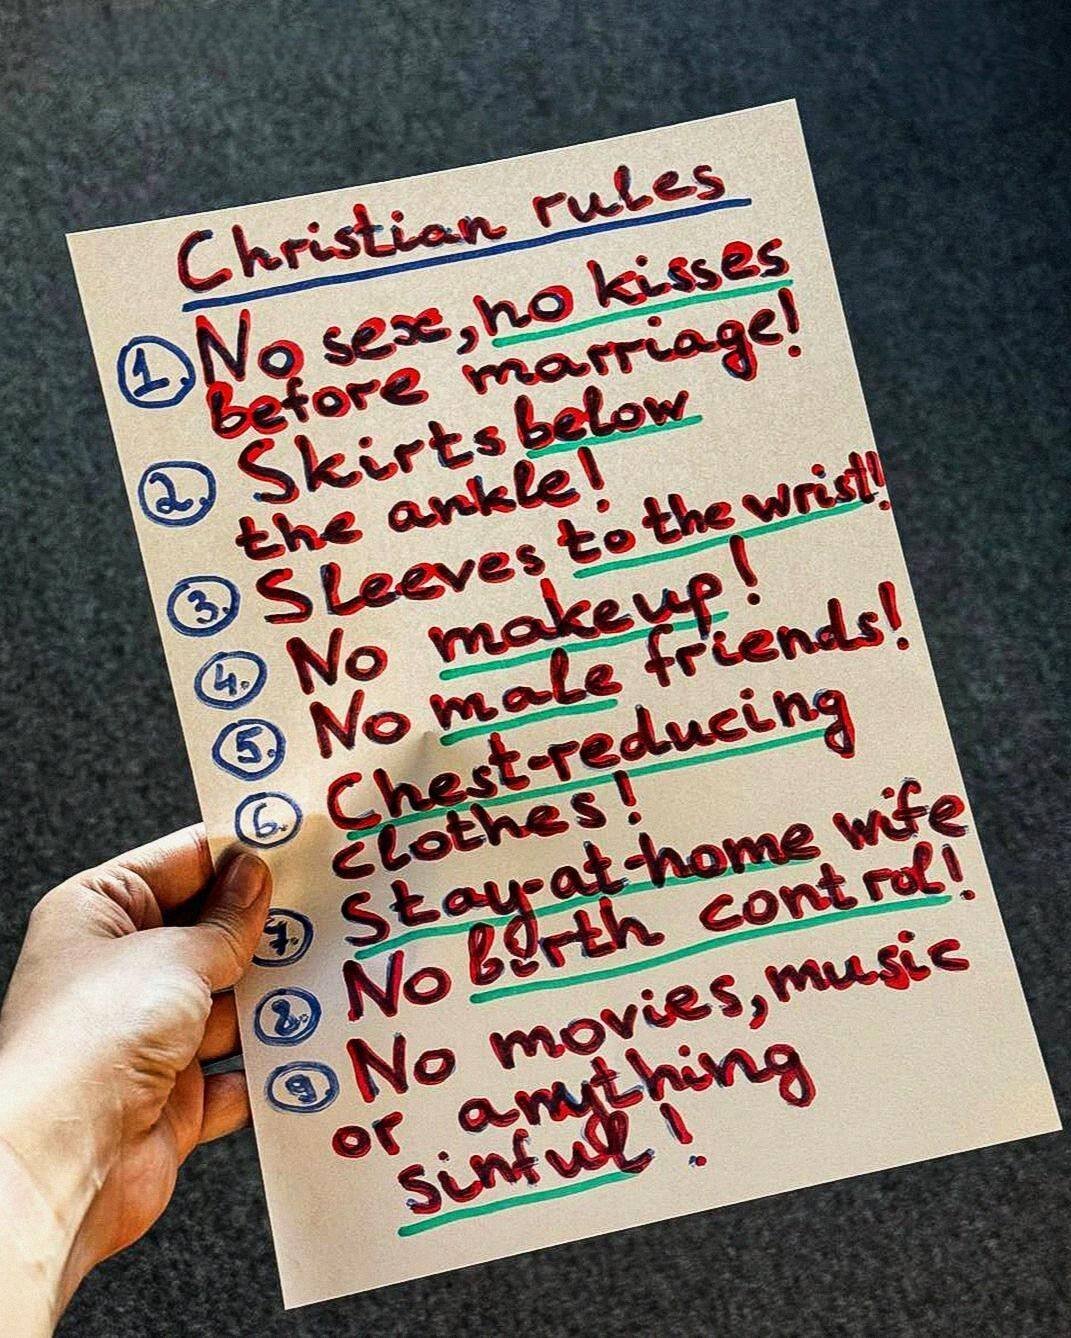 Christian rules
1. No sex, no kisses
before marriage!
2. Skirts below
the ankle!
3. Sleeves to the wrist!
4. No makeup!
5. No male friends!
6. Chest-reducing
clothes!
7. Stay-at-home wife
8. No birth control!
9. No movies, music
or anything
sinful!